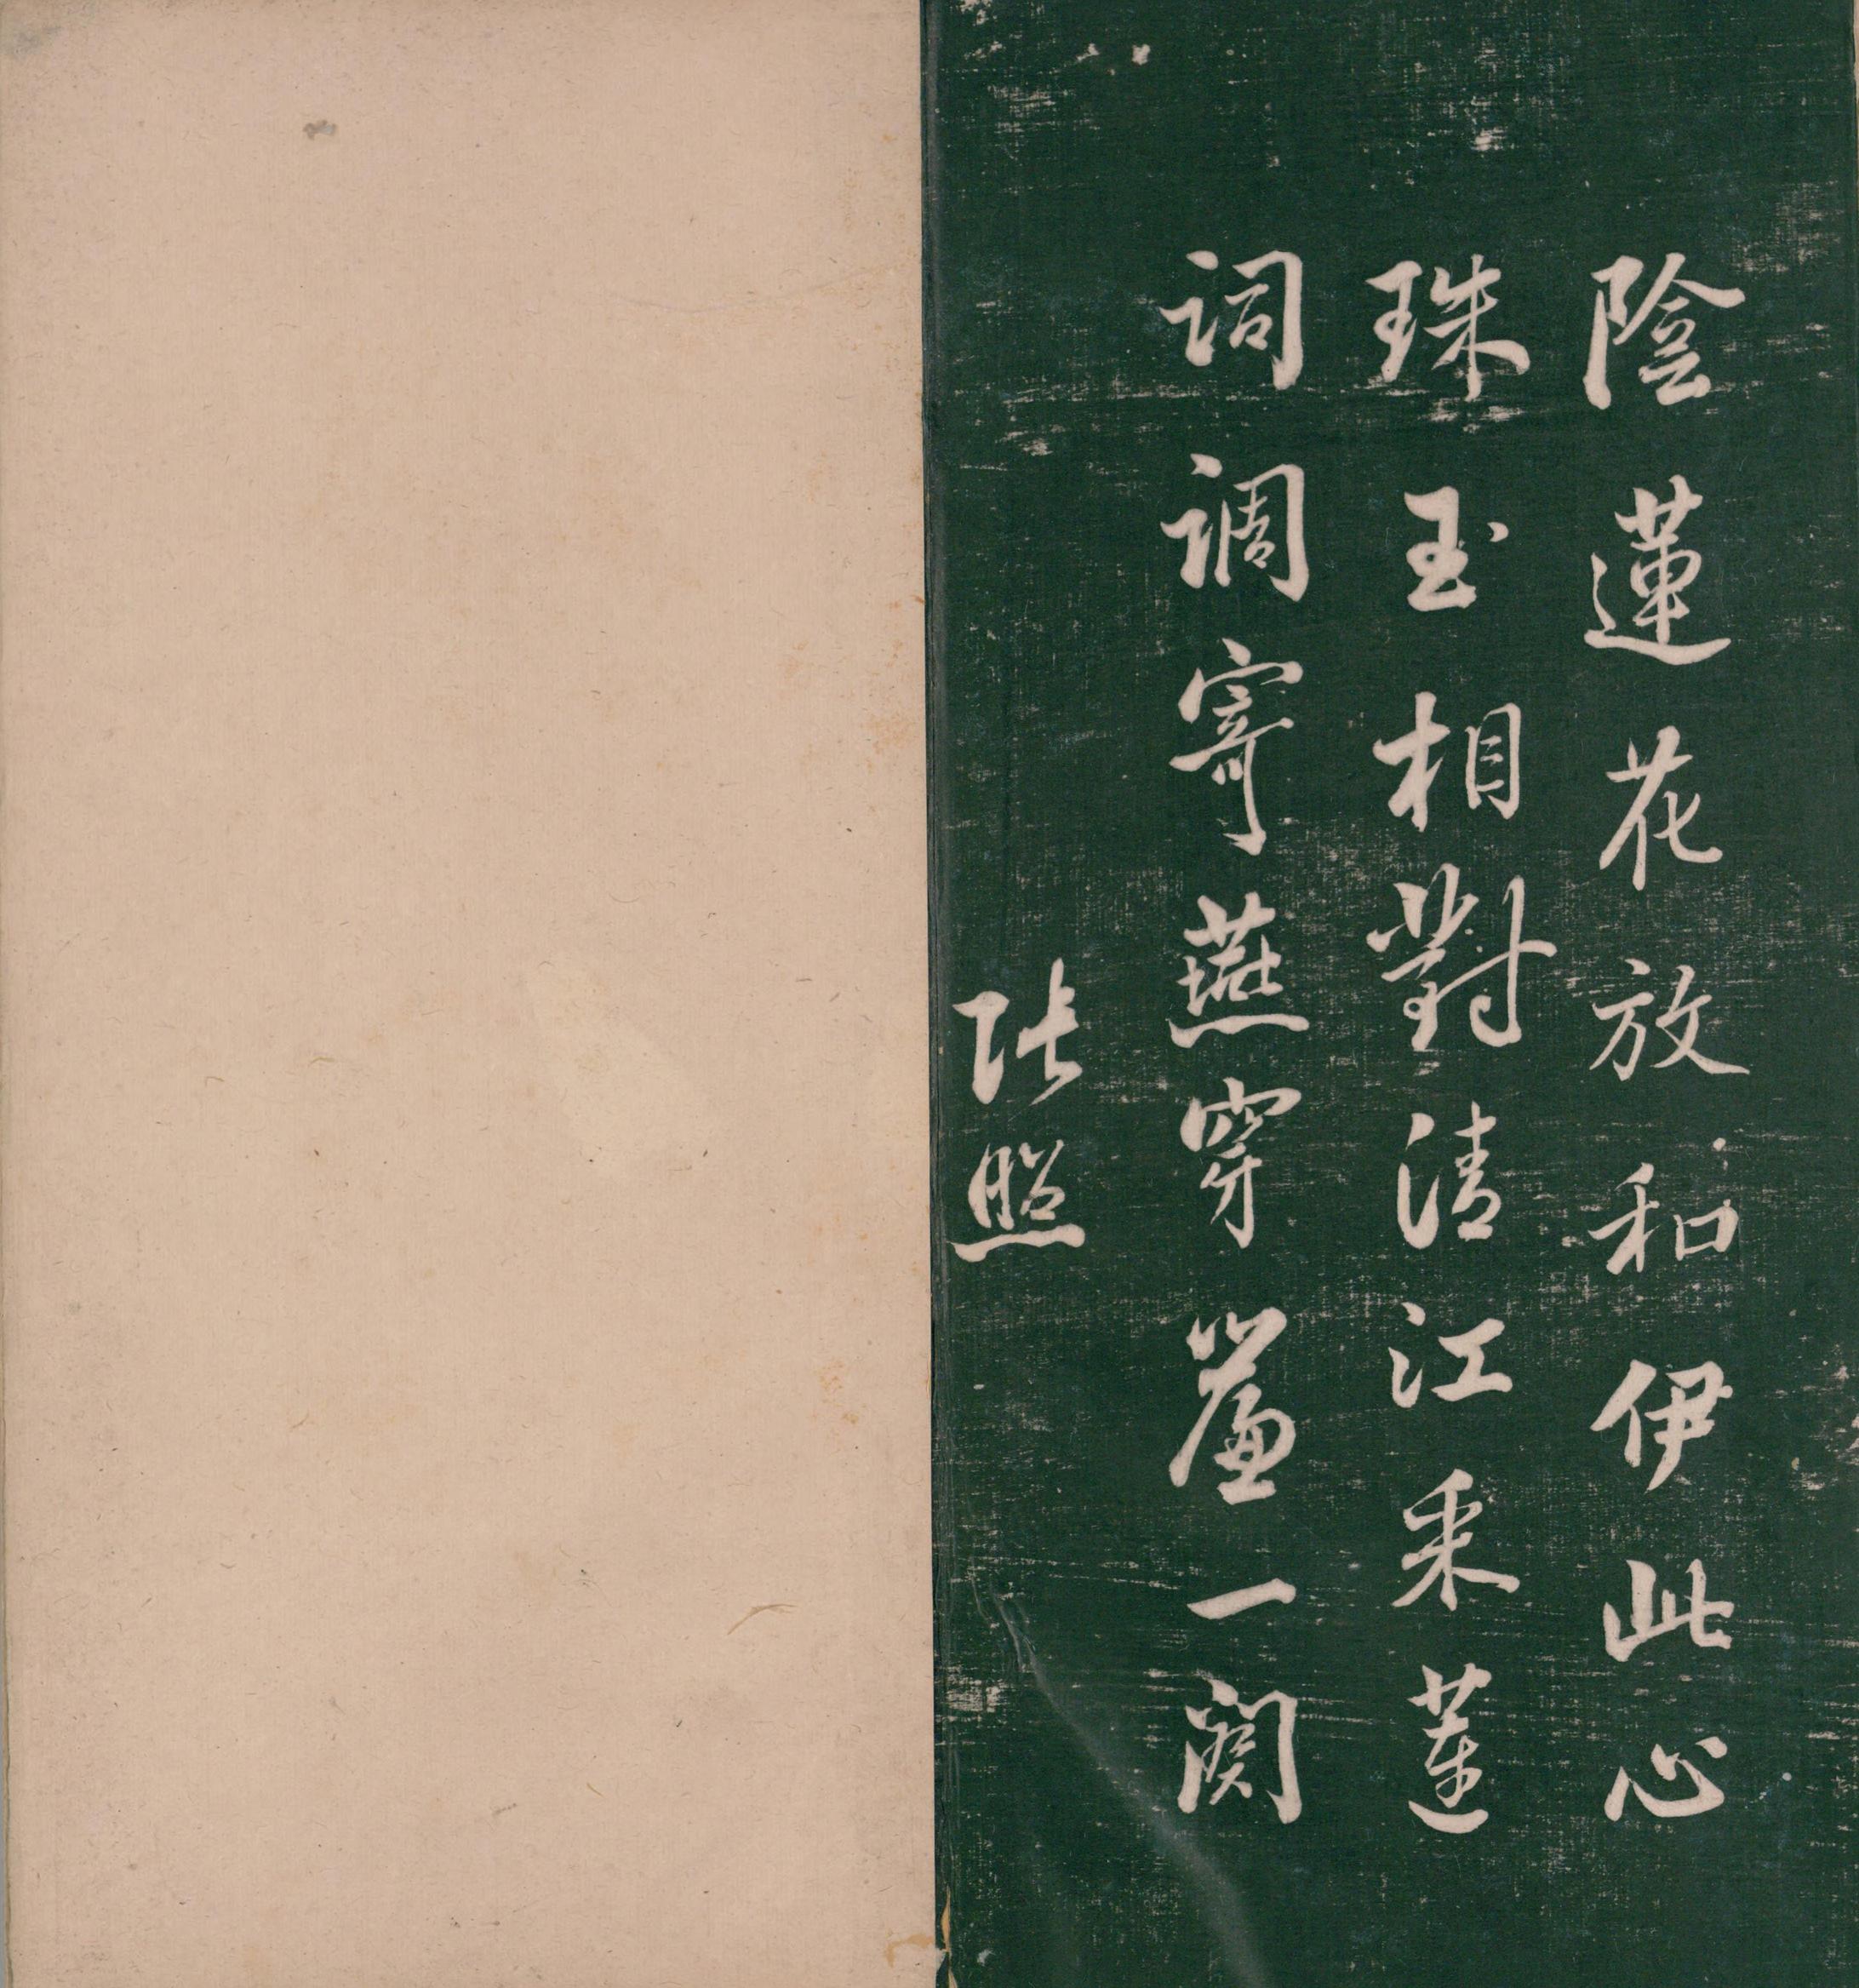 陰蓮花放和伊此心
珠玉相對清江采蓮
詞調寄燕穿簾一闋
張照